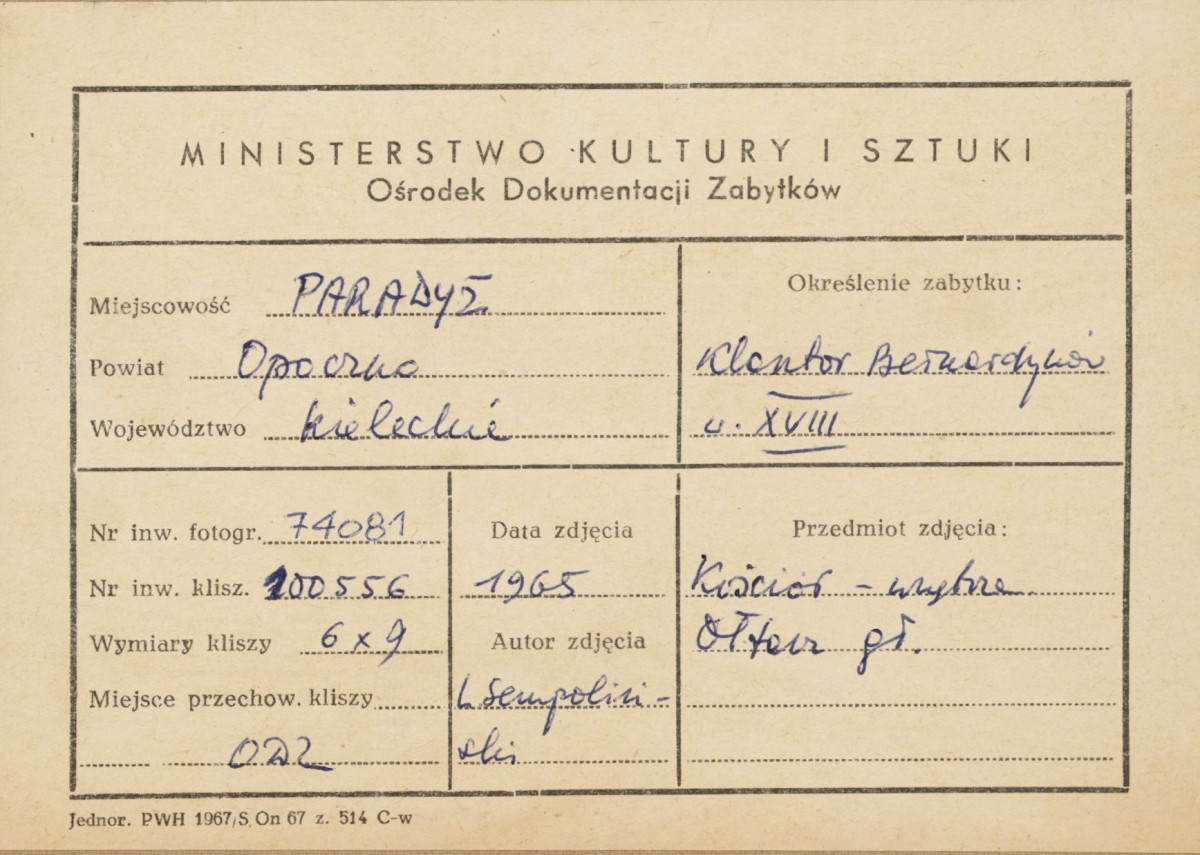 MINISTERSTWO KULTURY I SZTUKI
Ośrodek Dokumentacji Zabytków
Miejscowość PARADYŻ
Powiat Opoczno
Województwo kieleckie
Określenie zabytku:
Klasztor Bernardynów
w. XVIII
Nr inw. fotogr. 74081
Nr inw. klisz. 100556
Wymiary kliszy 6 x 9
Miejsce przechow. kliszy
ODZ
Data zdjęcia
1965
Autor zdjęcia
L Sempoliń-
ski
Przedmiot zdjęcia:
Kościół - wnętrze
Ołtarz gł.
Jednor. PWH 1967/S. On 67 z. 514 C-w